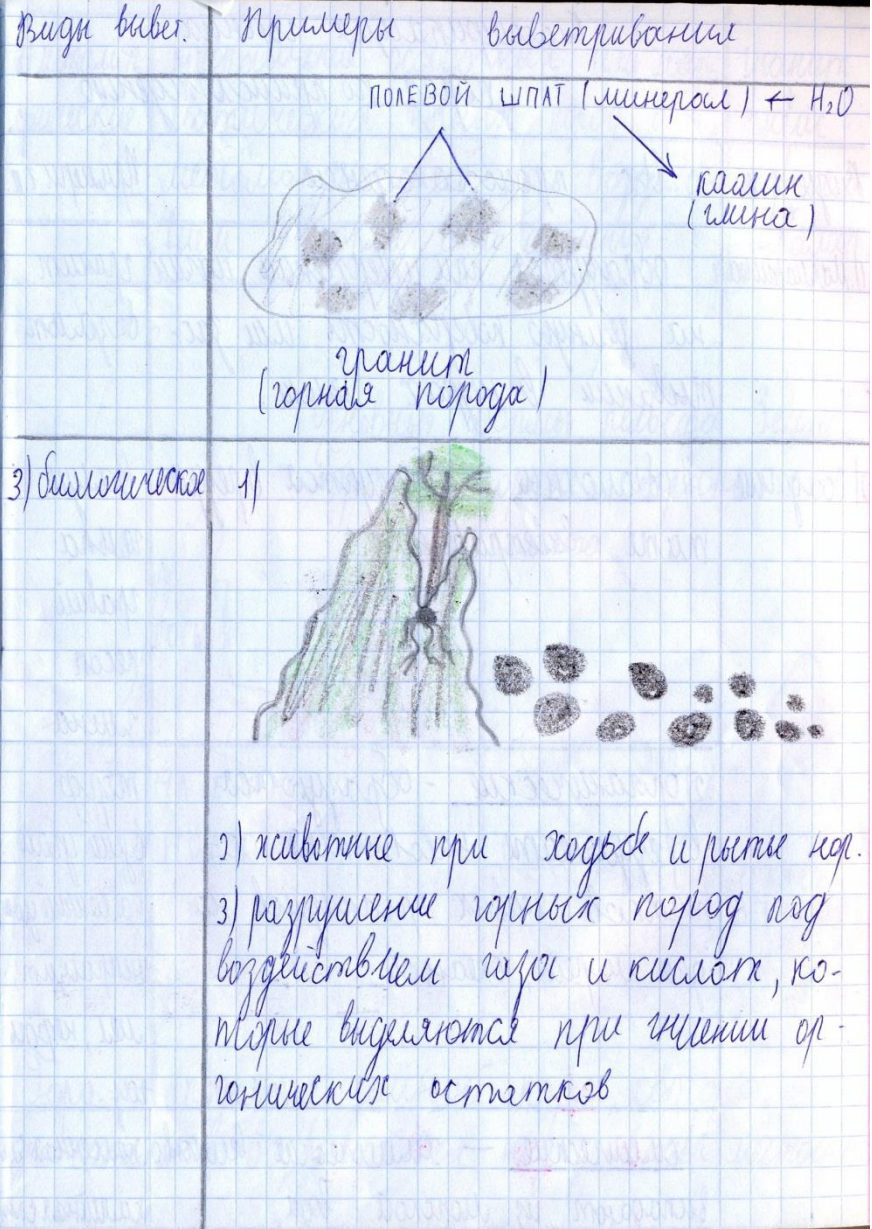 Виды вывет. Примеры выветривания
ПОЛЕВОЙ ШПАТ (минерал) ← H₂O
каолин
(глина)
гранит
(горная порода)
3) биологическое 1)
2) животные при ходьбе и рытье нор.
3) разрушение горных пород под
воздействием газа и кислот, ко-
торые выделяются при гниении ор-
гонических остатков